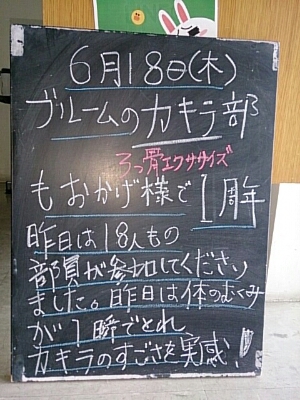 6月18日(木)
ブルームのカキラ部
ろっ骨エクササイズ
もおかげ様で1周年
昨日は18人もの
部員が参加してください
ました。昨日は体のむくみ
が1瞬でとれ、
カキラのすごさを実感!